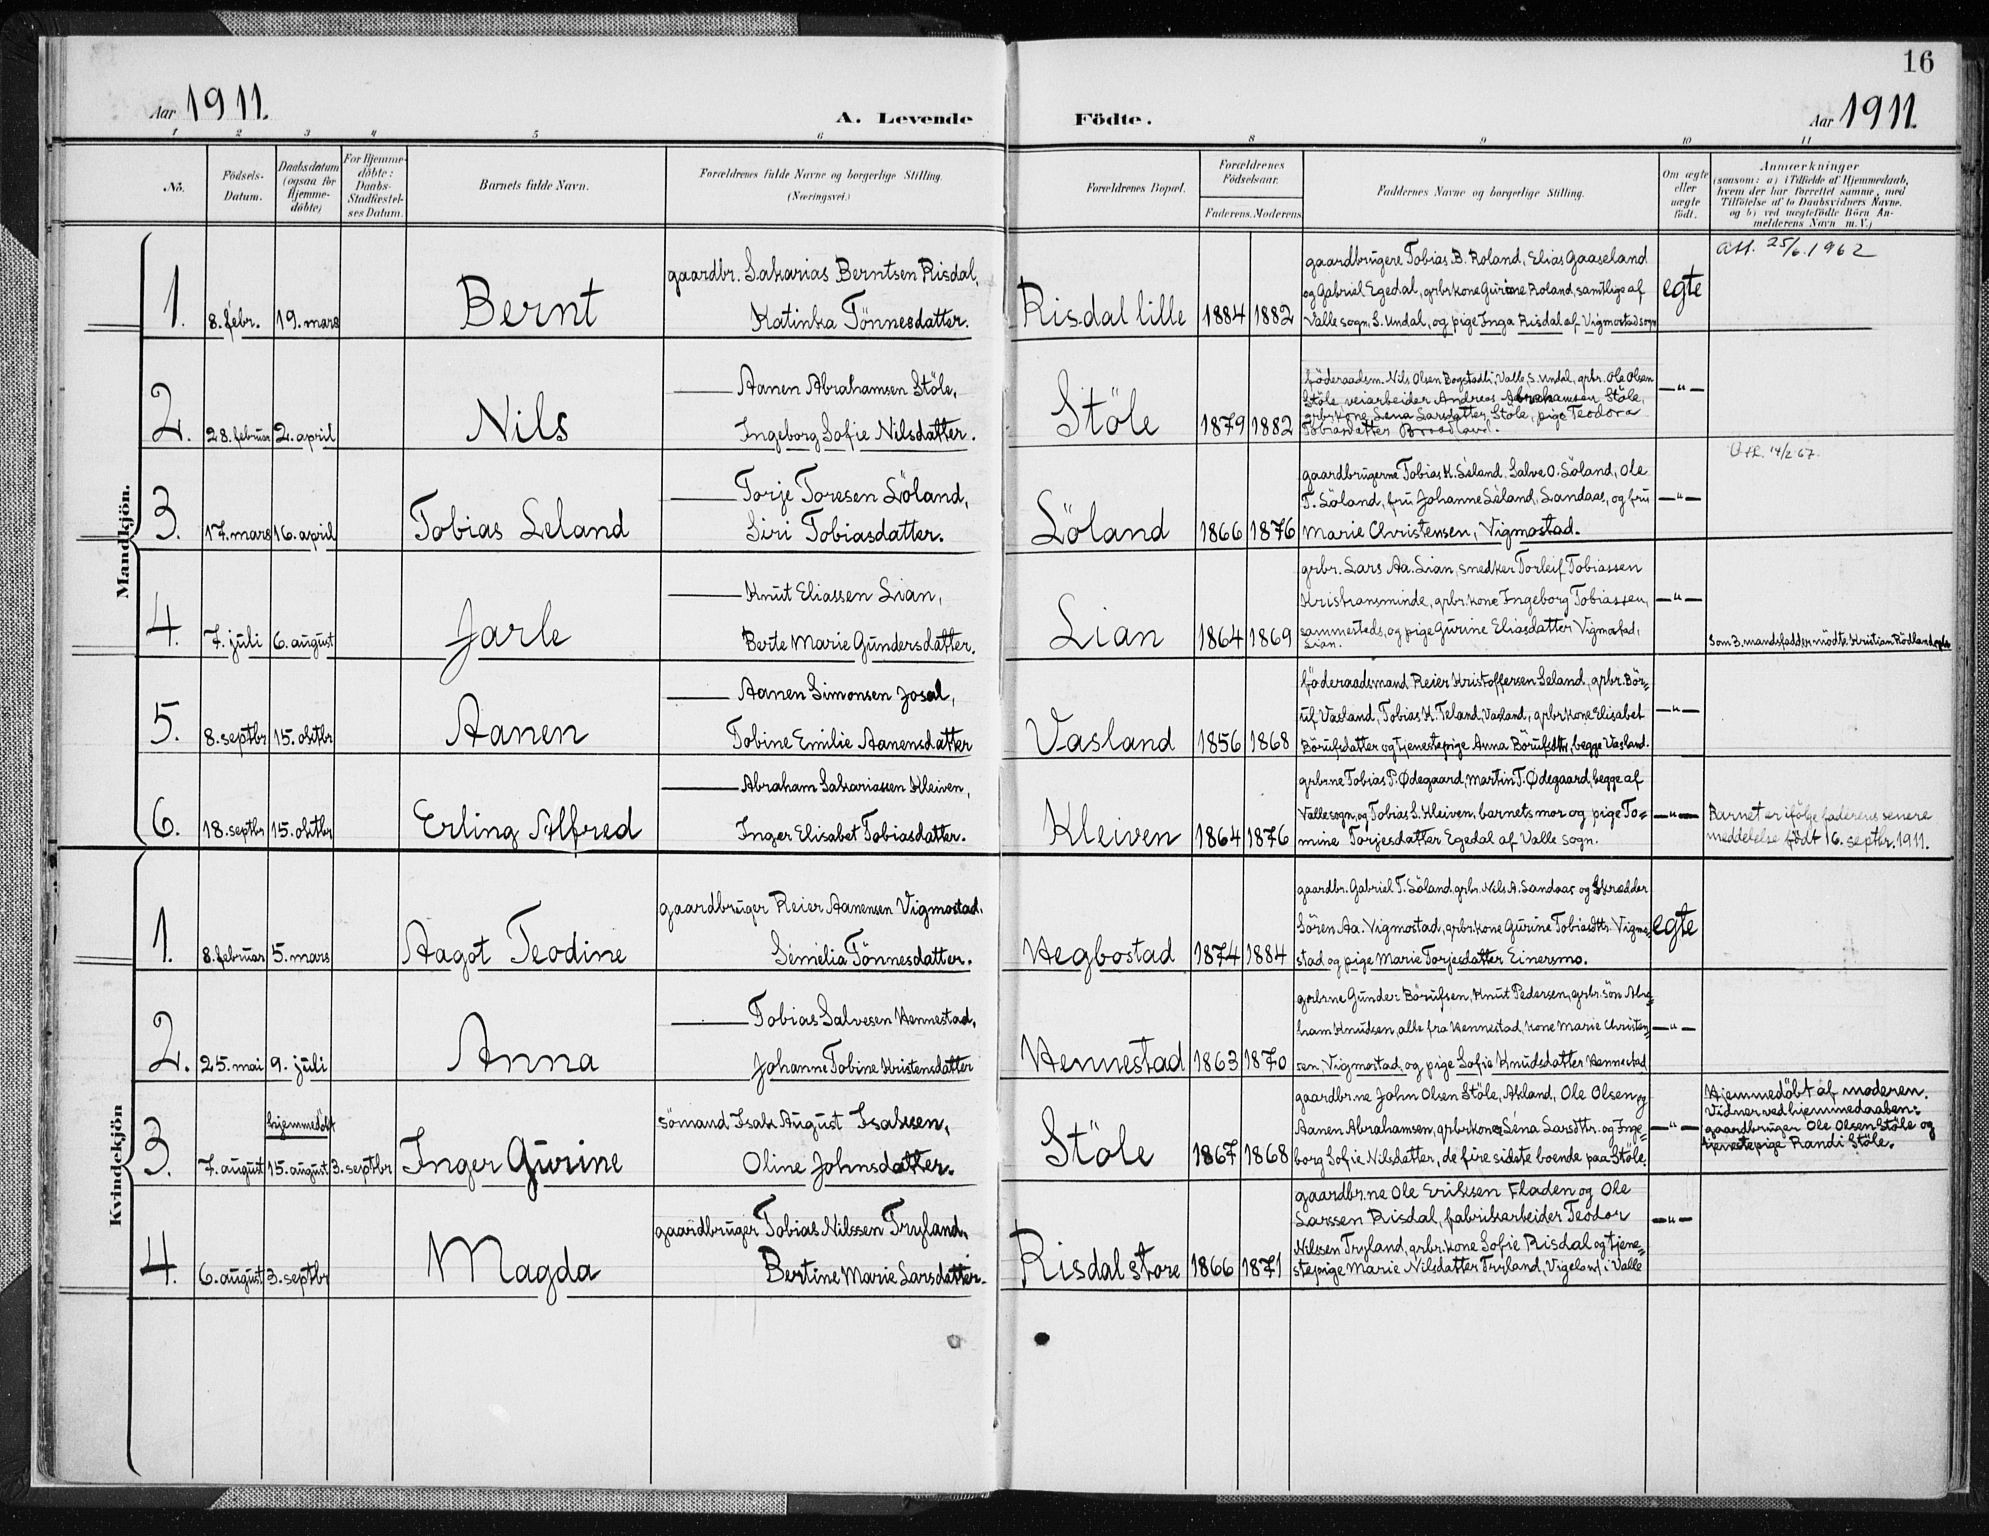 16
Aar 1911.
A. Levende
Födte.
Aar 1911.
1 2 3 4 5 6 8 9 10 11
No.
Födsels-
Datum.
Daabsdatum
(ogsaa for
Hjemme-
döbte)
For Hjemme-
döbte:
Daabs-
Stadfæstel-
ses Datum.
Barnets fulde Navn.
Forældrenes fulde Navne og borgerlige Stilling.
(Næringsvei.)
Forældrenes Bopæl.
Forældrenes
Födselsaar.
Faderens. Moderens.
Faddernes Navne og borgerlige Stilling.
Om ægte
eller
uægte
födt.
Anmærkninger
(saasom: a) i Tilfælde af Hjemmedaab,
hvem der har forrettet samme, med
Tilföielse af to Daabsvidners Navne.
og b) ved uægtefödte Börn An-
melderens Navn m. V.)
Mandkjön.
1.
8. febr.
19. mars
Bernt
gaardbr. Sakarias Berntsen Risdal,
Katinka Tönnesdatter.
Risdal lille
1884
1882
gaardbrugere Tobias B. Roland, Elias Gaaseland
og Gabriel Egedal, grbr.kone Gurine Roland, samtlige af
Valle sogn, S. Undal, og pige Inga Risdal af Vigmostad sogn
egte
Att. 25/6.1962
2.
28. februar
2. april
Nils
— Aanen Abrahamsen Stöle,
Ingeborg Sofie Nilsdatter.
Stöle
1879
1882
föderaadsm. Nils Olsen Bogstadli, Valle, S. Undal, grbr. Ole Olsen
Stöle, veiarbeider Andreas Abrahamsen Stöle,
grbr.kone Lena Larsdatter Stöle, pige Teodora
Tobiasdatter Braadland.
—"—
3.
17. mars
16. april
Tobias Leland
— Torje Toresen Löland,
Siri Tobiasdatter.
Löland
1866
1876
gaardbrugerne Tobias K. Leland, Salve O. Löland, Ole
T. Löland, fru Johanne Leland, Sandaas, og fru
Marie Christensen, Vigmostad.
—"—
14/2 67.
4.
7. juli
6. august
Jarle
— Knut Eliassen Lian,
Berte Marie Gundersdatter.
Lian
1864
1869
grbr. Lars Aa. Lian, snedker Torleif Tobiassen
Kristiansminde, grbr.kone Ingeborg Tobiassen,
sammesteds, og pige Gurine Eliasdatter Vigmostad,
Lian.
—"—
Som 3. mandsfadder mödte Kristian Rödland
5.
8. septbr
15. oktbr
Aanen
— Aanen Simonsen Josal,
Tobine Emilie Aanensdatter
Vasland
1856
1868
föderaadsmand Reier Kristoffersen Leland, grbr. Bör-
uf Vasland, Tobias K. Teland, Vasland, grbr.kone Elisabet
Börufsdatter og tjenestepige Anna Börufsdtr, begge Vasland.
—"—
6.
18. septbr
15. oktbr
Erling Alfred
— Abraham Sakariassen Kleiven,
Inger Elisabet Tobiasdatter.
Kleiven
1864
1876
grbrne Tobias P. Ødegaard, Martin T. Ødegaard, begge af
Valle sogn, og Tobias S. Kleiven, barnets mor og pige To-
mine Torjesdatter Egedal af Valle sogn.
—"—
Barnet er ifölge faderens senere
meddelelse födt 16. septbr. 1911.
Kvindekjön
1.
8. februar
5. mars
Aagot Teodine
gaardbruger Reier Aanensen Vigmostad,
Semelia Tönnesdatter.
Hegbostad
1874
1884
gaardbr. Gabriel T. Löland, grbr. Nils A. Sandaas og Skrædder
Sören Aa. Vigmostad, grbr.kone Gurine Tobiasdtr. Vigmo-
stad og pige Marie Torjesdatter Einersmo.
egte
2.
25. mai
9. juli
Anna
— Tobias Salvesen Hennestad,
Johanne Tobine Kristensdatter
Hennestad
1863
1870
grbrne Gunder Börufsen, Knut Pedersen, grbr. sön Abra-
ham Knudsen, alle fra Hennestad, kone Marie Christen-
sen, Vigmostad og pige Sofie Knudsdatter Hennestad
—"—
3.
7. august
hjemmedöbt
15. august
3. septbr
Inger Gurine
sömand Isak August Isaksen,
Oline Johnsdatter.
Stöle
1867
1868
gaardbr.ne John Olsen Stöle, Akland, Ole Olsen og
Aanen Abrahamsen, grbrkone Lena Larsdtr. og Inge-
borg Sofie Nilsdatter, de fire sidste boende paa Stöle.
—"—
Hjemmedöbt af moderen.
Vidner ved hjemmedaaben:
gaardbruger Ole Olsen Stöle og
tjenestepige Randi Stöle.
4.
6. august
3. septbr
Magda
gaardbruger Tobias Nilssen Tryland,
Bertine Marie Larsdatter.
Risdal store
1866
1871
gaardbr.ne Ole Eriksen Fladen og Ole
Larssen Risdal, fabrikarbeider Teodor
Nilssen Tryland, grbr.kone Sofie Risdal og tjene-
stepige Marie Nilsdatter Tryland, Vigeland i Valle
—"—